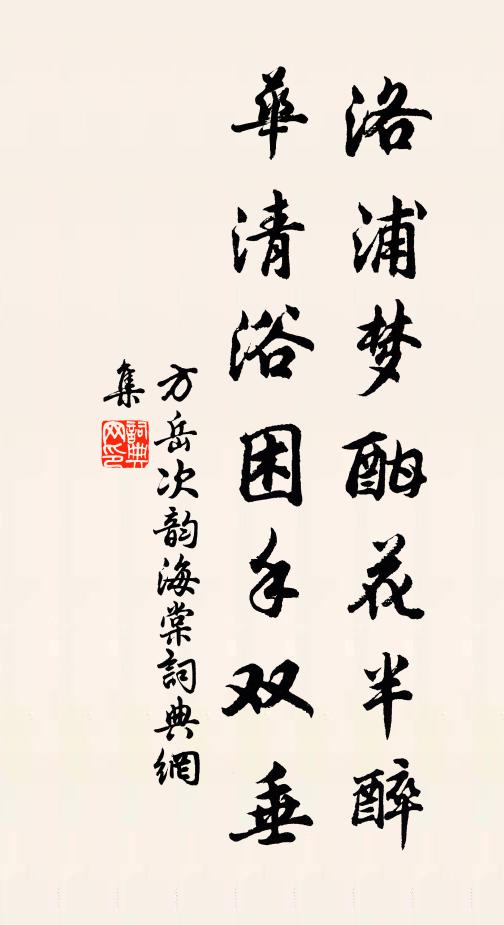 洛浦梦酣花半醉
華清浴困手双垂
方岳次韵海棠詞典網
集
詞典
网印